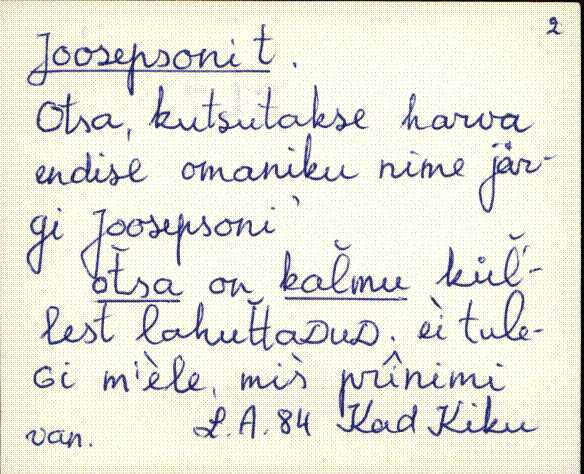 2
Joosepsoni t.
Otsa, kutsutakse harva
endise omaniku nime jär-
gi Joosepsoni`
ot̆sa on kal̆mu kül̆'-
lest lahut̆taDuD. eì tule-
Gi m'èle, mis̀ prî̀nimi
van. L.A. 84 Kad Kiku